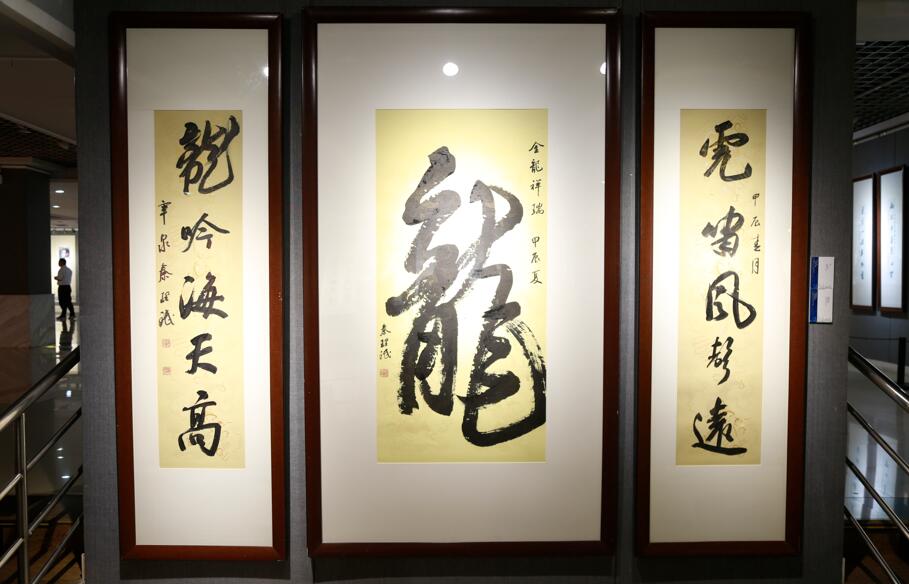 虎嘯風聲遠
甲辰
金龍祥瑞 甲辰夏
龍
秦
龍吟海天高
秦